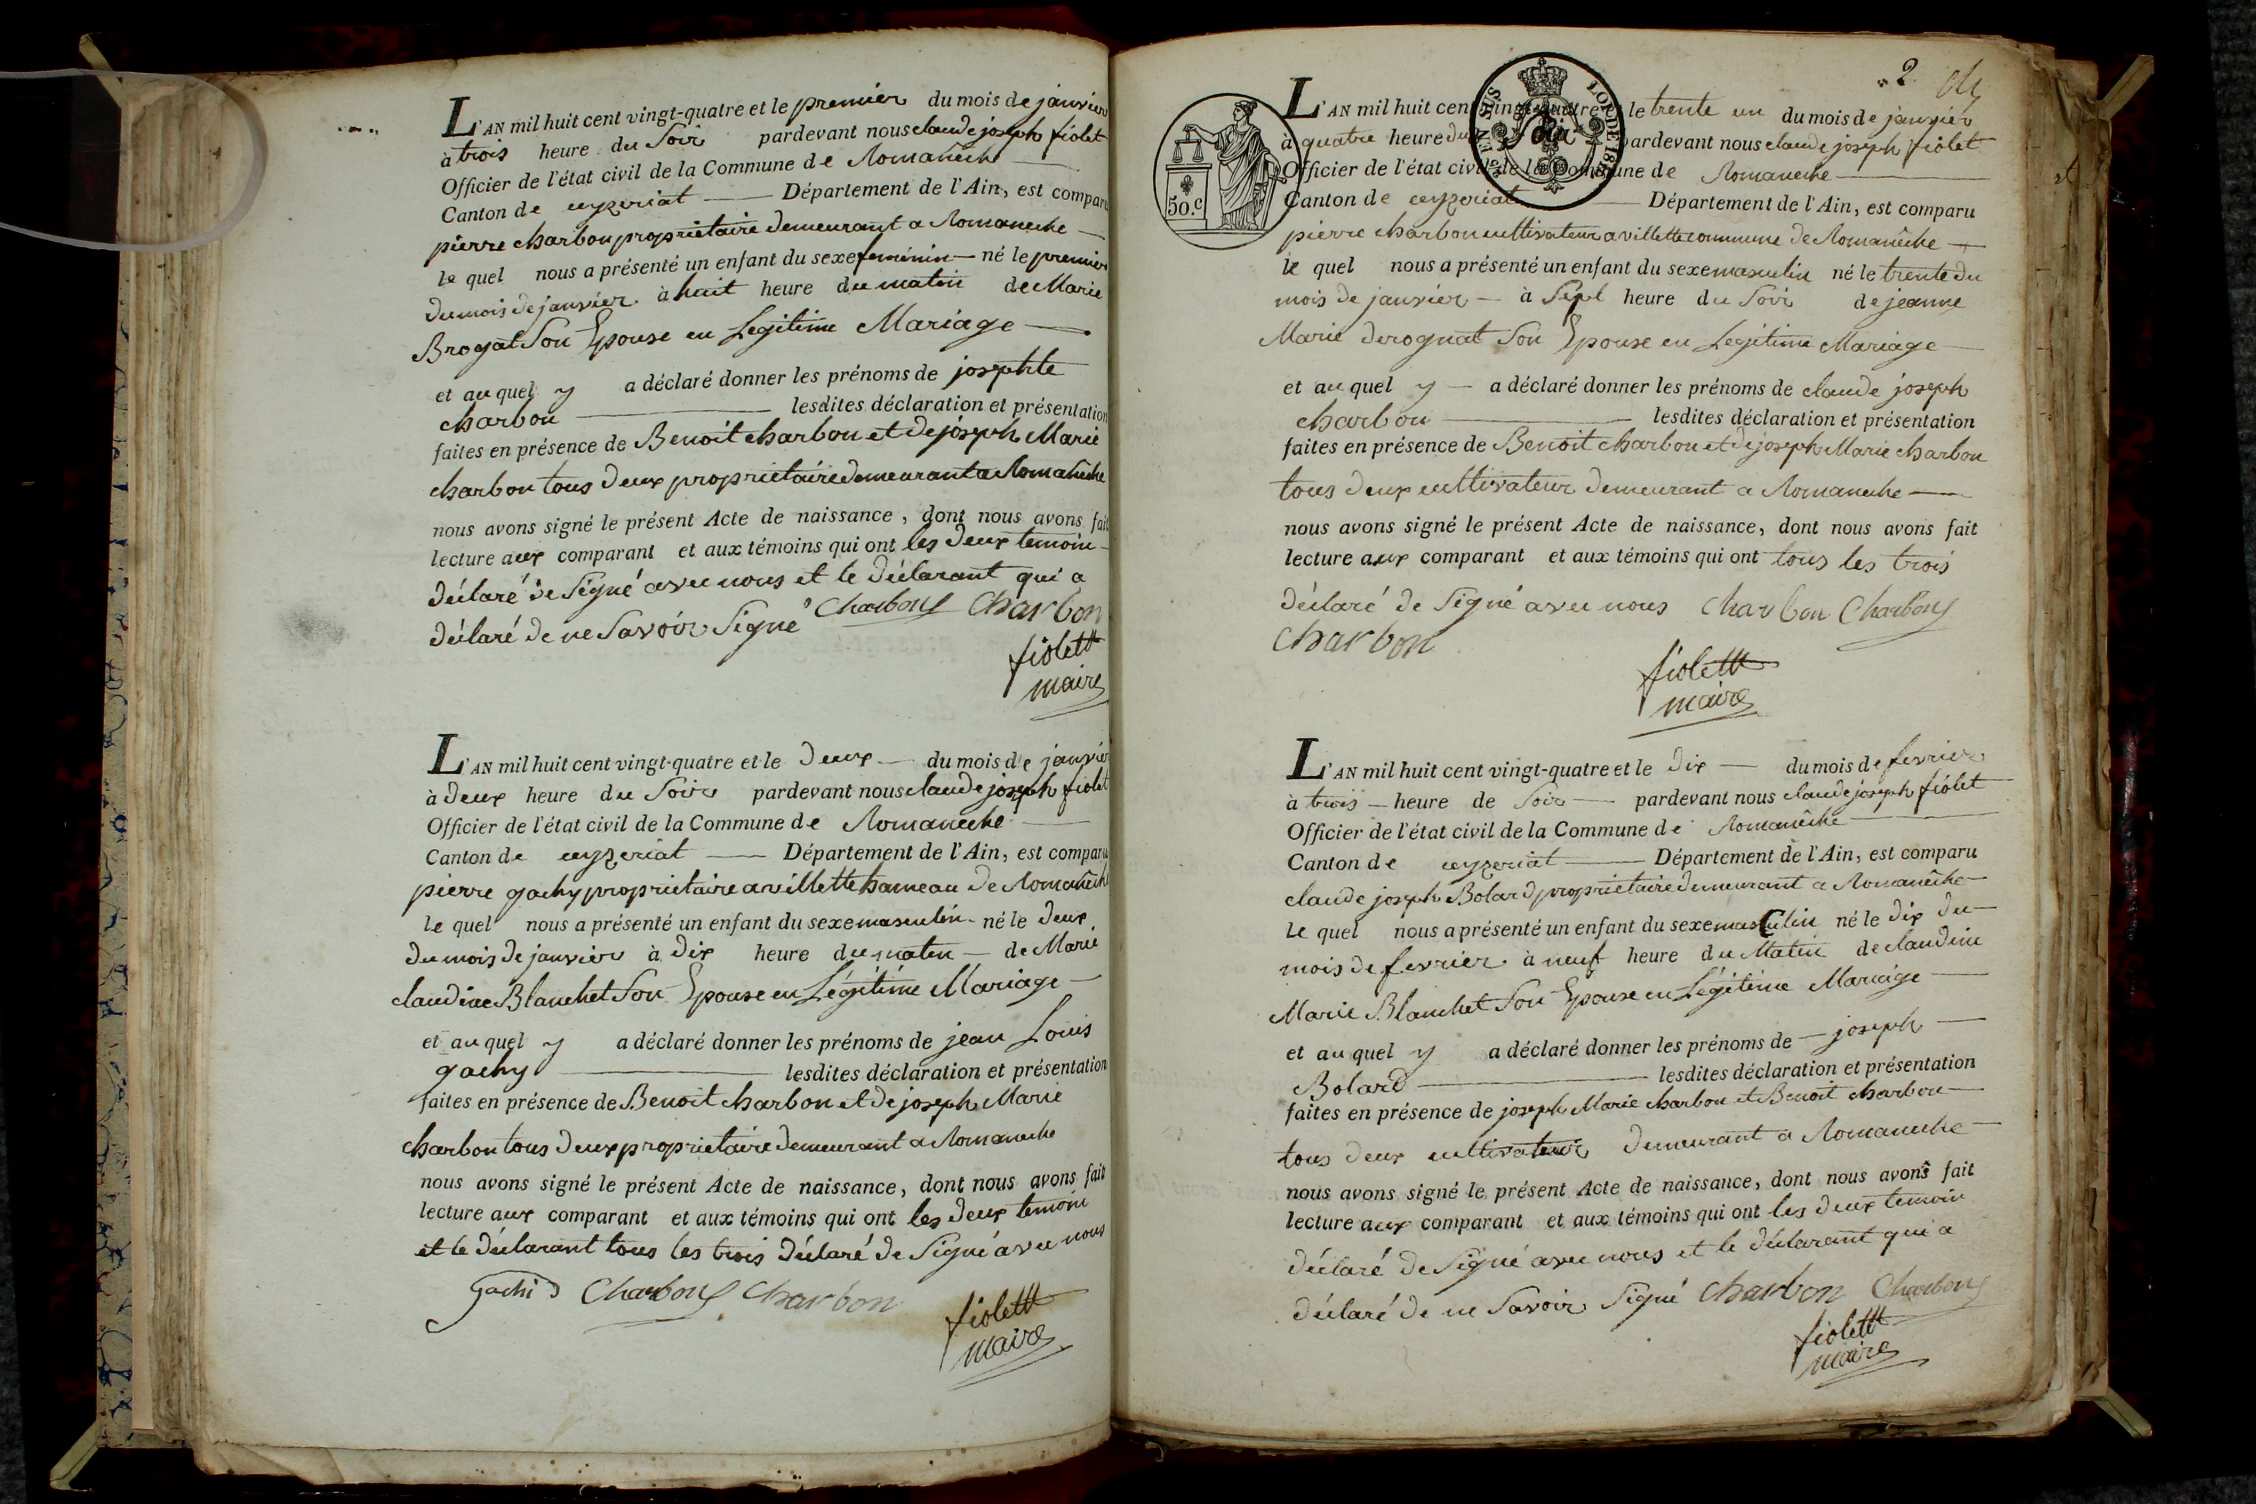 L'AN mil huit cent vingt-quatre et le premier du mois de janvier
à trois heure du Soir pardevant nous claude joseph fiolet
Officier de l'état civil de la Commune de Romanêche
Canton de ceyzeriat Département de l'Ain, est comparu
pierre charbon proprietaire demeurant a Romaneche
le quel nous a présenté un enfant du sexe feminin né le premier
du mois de janvier à huit heure du matin de Marie
Brogat Son Epouse en Legitime Mariage
et au quel y a déclaré donner les prénoms de josephte
charbon lesdites déclaration et présentation
faites en présence de Benoit charbon et de joseph Marie
charbon tous deux proprietaire demeurant a Romanêche
nous avons signé le présent Acte de naissance, dont nous avons fait
lecture aux comparant et aux témoins qui ont les deux temoin
déclaré de Signé avec nous et le déclarant qui a
déclaré de ne Savoir Signé Charbon Charbon
fiolett
maire
L'AN mil huit cent vingt-quatre et le deux du mois de janvier
à deux heure du Soir pardevant nous claude joseph fiolet
Officier de l'état civil de la Commune de Romanêche
Canton de ceyzeriat Département de l'Ain, est comparu
pierre gachy proprietaire a villette hameau de Romanêche
le quel nous a présenté un enfant du sexe masculin né le deux
du mois de janvier à dix heure du matin de Marie
claudine Blanchet Son Epouse en Légitime Mariage
et au quel y a déclaré donner les prénoms de jean Louis
gachy lesdites déclaration et présentation
faites en présence de Benoit charbon et de joseph Marie
charbon tous deux proprietaire demeurant a Romaneche
nous avons signé le présent Acte de naissance, dont nous avons fait
lecture aux comparant et aux témoins qui ont les deux temoin
et le déclarant tous les trois déclaré de Signé avec nous
gachi Charbon Charbon
fiolett
maire
2
50.c
L'AN mil huit cent vingt-quatre et le trente un du mois de janvier
à quatre heure du Soir pardevant nous claude joseph fiolet
Officier de l'état civil de la Commune de Romaneche
Canton de ceyzeriat Département de l'Ain, est comparu
pierre charbon cultivateur a villette commune de Romanêche
le quel nous a présenté un enfant du sexe masculin né le trente du
mois de janvier à Sept heure du Soir de jeanne
Marie derognat Son Epouse en Legitime Mariage
et au quel y a déclaré donner les prénoms de claude joseph
charbon lesdites déclaration et présentation
faites en présence de Benoit charbon et de joseph Marie charbon
tous deux cultivateur demeurant a Romaneche
nous avons signé le présent Acte de naissance, dont nous avons fait
lecture aux comparant et aux témoins qui ont tous les trois
déclaré de Signé avec nous charbon Charbon
Charbon
fiolett
maire
L'AN mil huit cent vingt-quatre et le dix du mois de fevrier
à trois heure de Soir pardevant nous claude joseph fiolet
Officier de l'état civil de la Commune de Romanêche
Canton de ceyzeriat Département de l'Ain, est comparu
claude joseph Bolard proprietaire demeurant a Romanêche
le quel nous a présenté un enfant du sexe masculin né le dix du
mois de fevrier à neuf heure du Matin de claudine
Marie Blanchet Son Epouse en Légitime Mariage
et au quel y a déclaré donner les prénoms de joseph
Bolard lesdites déclaration et présentation
faites en présence de joseph Marie charbon et Benoit charbon
tous deux cultivateur demeurant a Romaneche
nous avons signé le présent Acte de naissance, dont nous avons fait
lecture aux comparant et aux témoins qui ont les deux temoin
déclaré de Signé avec nous et le déclarant qui a
déclaré de ne Savoir Signé Charbon Charbon
fiolett
maire